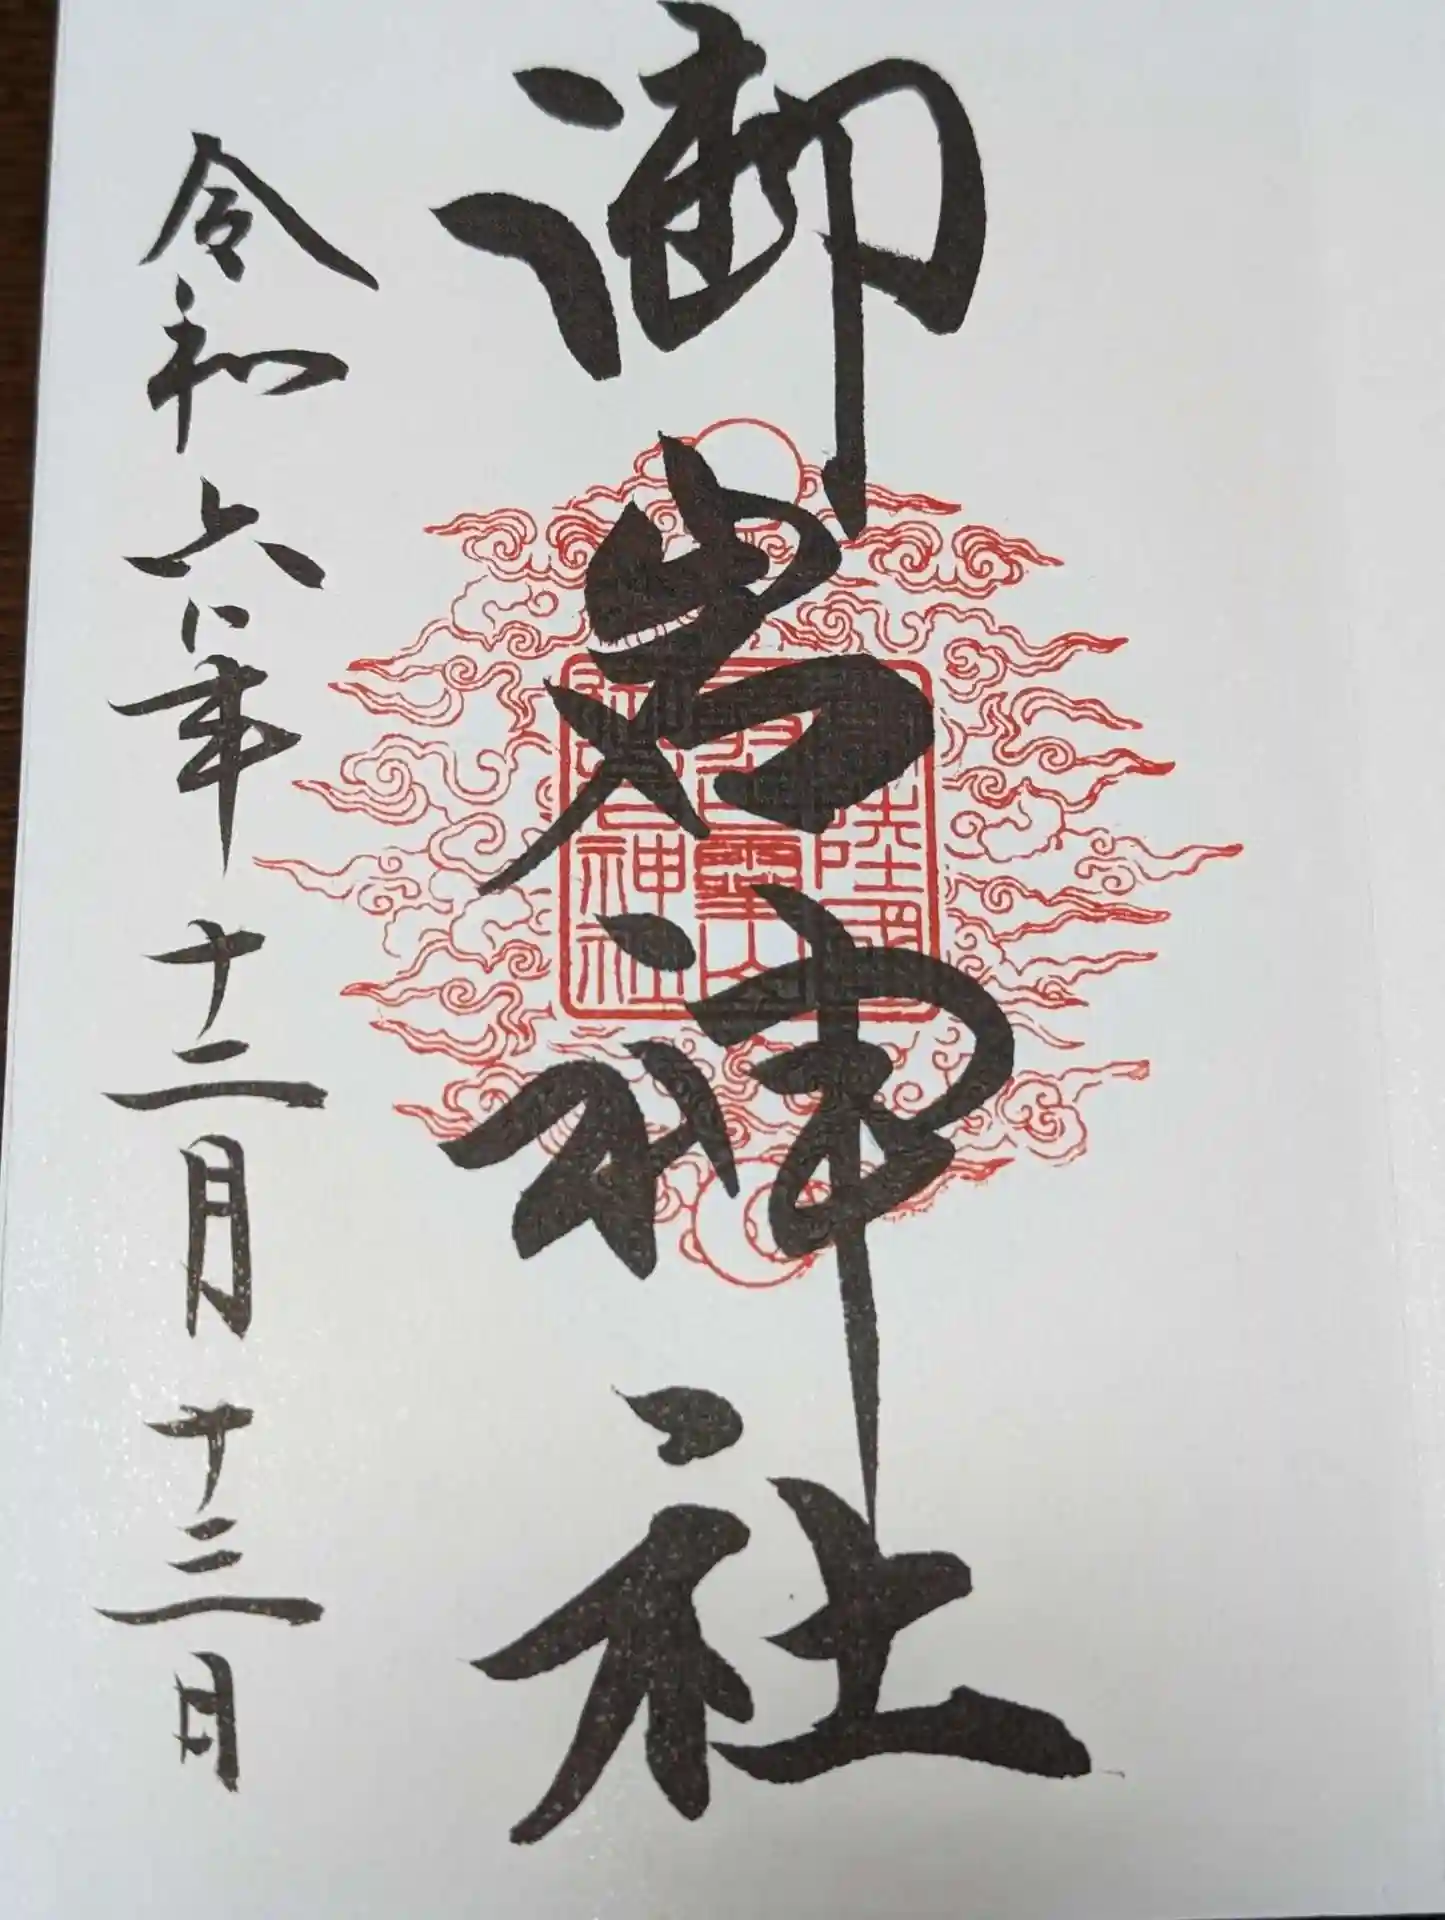 御岩神社
常陸國
最上霊山
御岩神社
令和六年十二月十三日